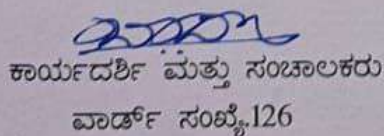 ಕಾರ್ಯದರ್ಶಿ ಮತ್ತು ಸಂಚಾಲಕರು
ವಾರ್ಡ್ ಸಂಖ್ಯೆ.126